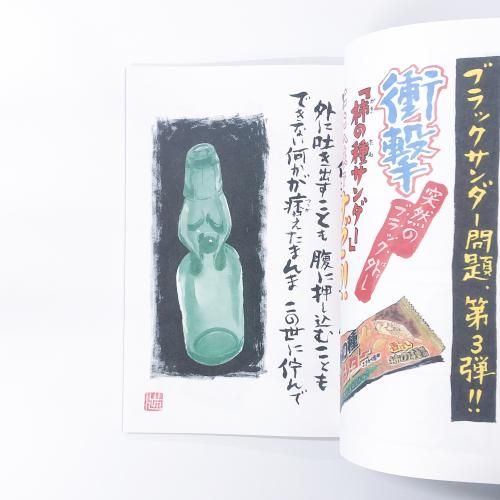 ブラックサンダー問題、第3弾!!
衝撃
突然の
ブラック外し
「柿の種サンダー」
かき
たね
外に吐き出すことも腹に押し込むことも
できない何かが痞えたまんま この世に佇んで
つか